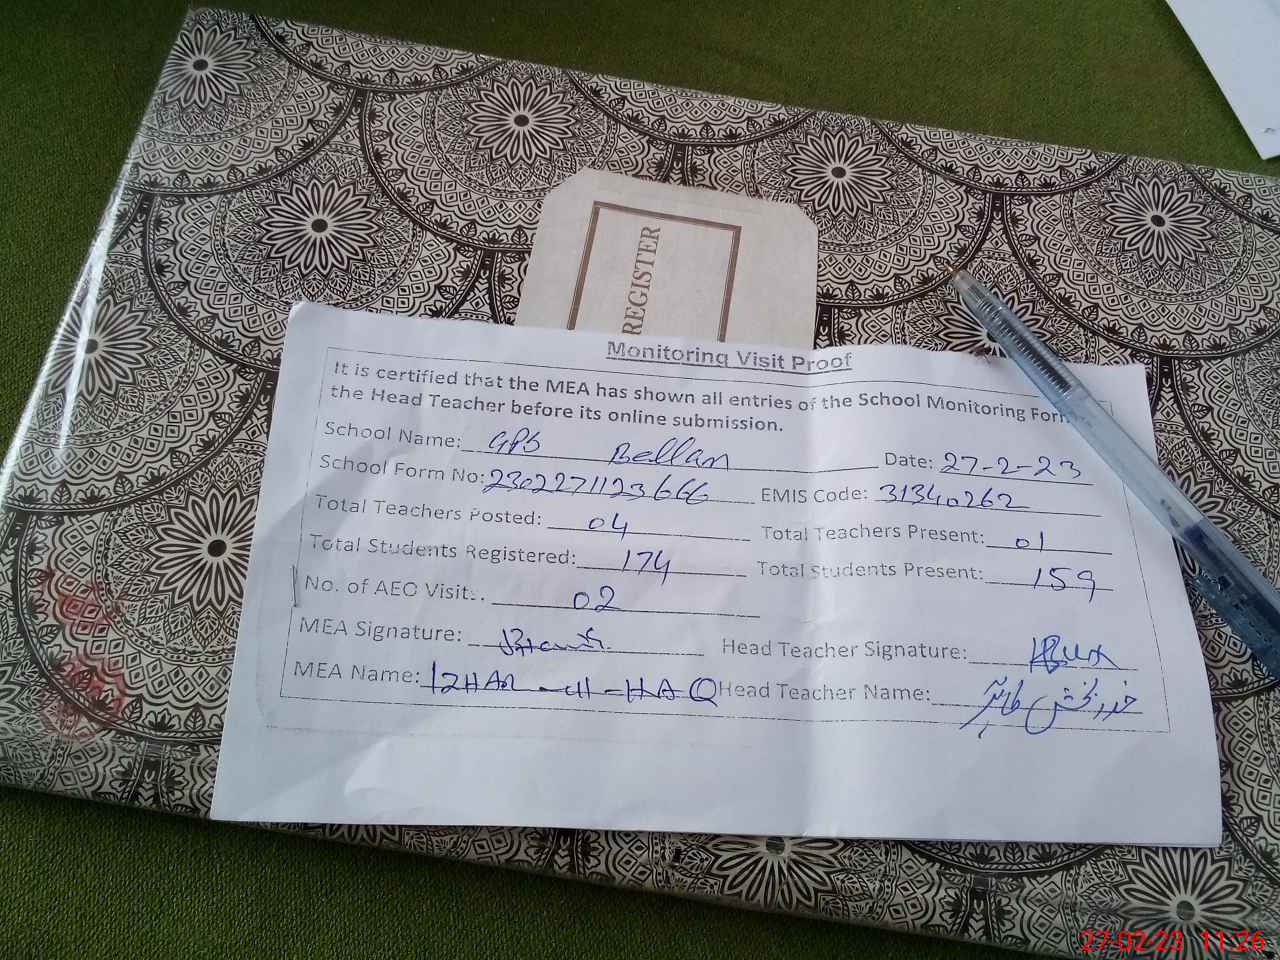 REGISTER
Monitoring Visit Proof
It is certified that the MEA has shown all entries of the School Monitoring Form
the Head Teacher before its online submission.
School Name: GPS Bellan Date: 27-2-23
School Form No: 2302271123666 EMIS Code: 31340262
Total Teachers Posted: 04 Total Teachers Present: 01
Total Students Registered: 174 Total Students Present: 159
No. of AEO Visit:. 02
MEA Signature: Head Teacher Signature:
MEA Name: IZHAR-ul-HAQ Head Teacher Name:
27-02-23 11:26